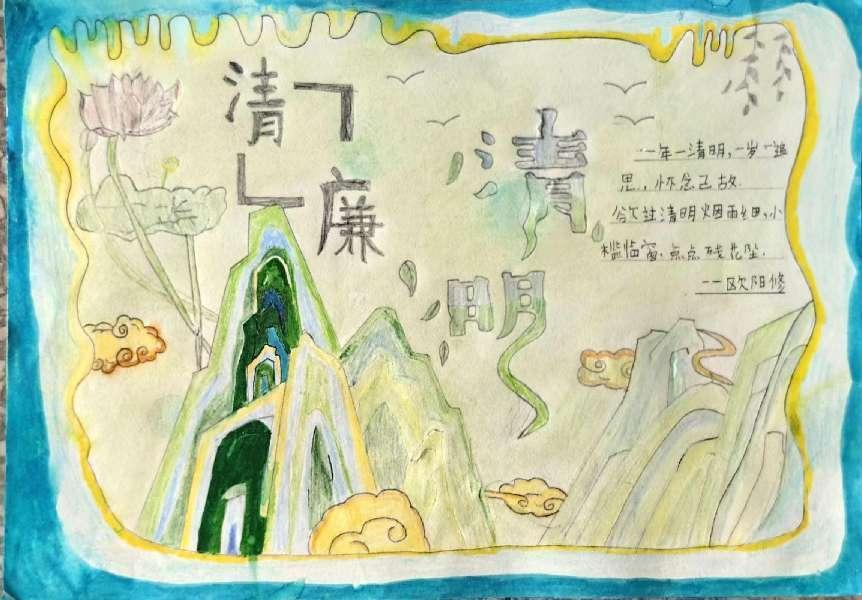 清
廉
清
明
一年一清明,一岁一追
思.,怀念己故.
欲过清明烟雨细,小
槛临窗,点点残花坠.
——欧阳修